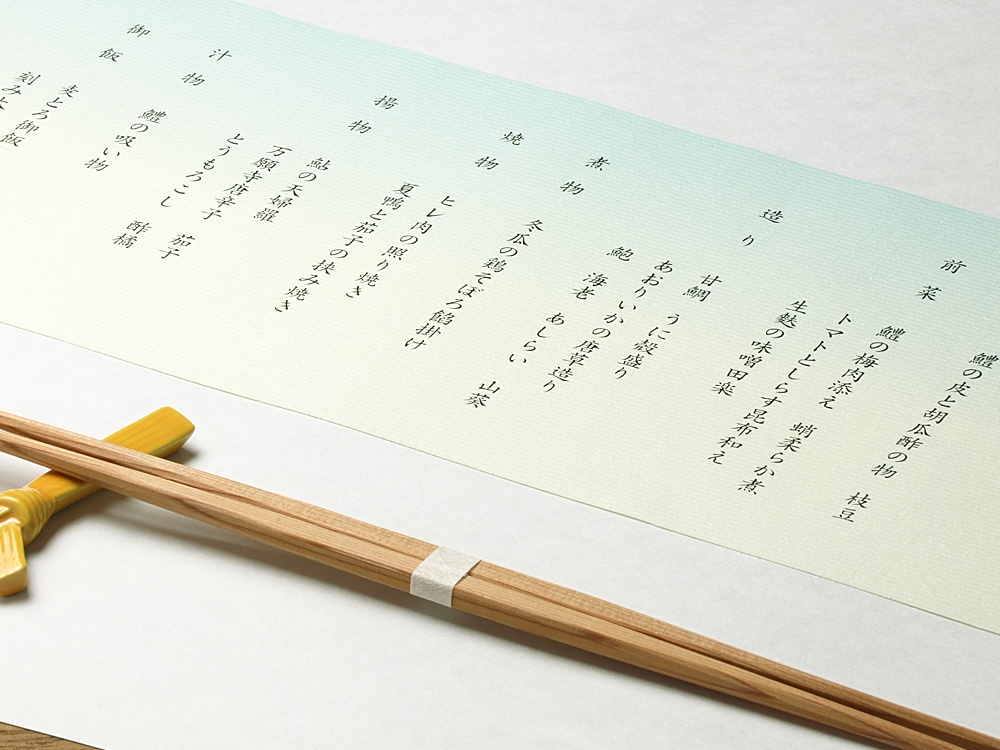 鱧の皮と胡瓜酢の物　枝豆
前菜
鱧の梅肉添え　蛸柔らか煮
トマトとしらす昆布和え
生麩の味噌田楽
造り
甘鯛　うに殻盛り
あおりいかの唐草造り
鮑　海老　あしらい　山葵
煮物
冬瓜の鶏そぼろ餡掛け
焼物
ヒレ肉の照り焼き
夏鴨と茄子の挟み焼き
揚物
鮎の天婦羅
万願寺唐辛子
とうもろこし　茄子
汁物
鱧の吸い物　酢橘
御飯
麦とろ御飯
刻み